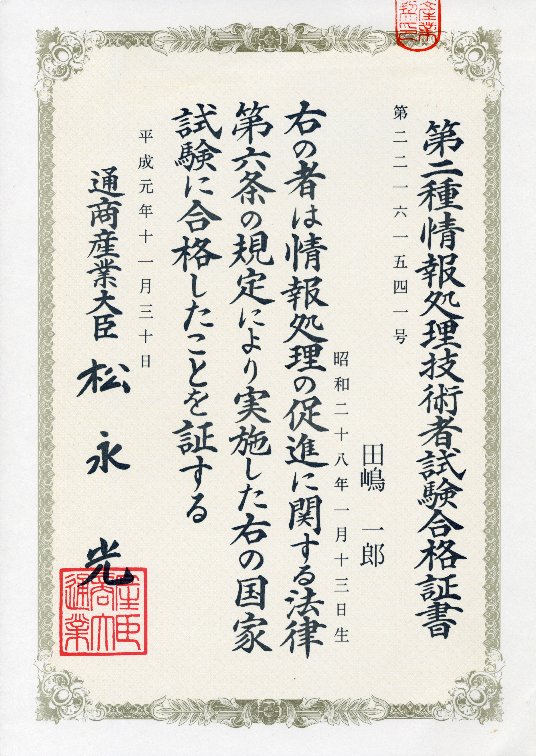 第二種情報処理技術者試験合格証書
第二二一六一五四一号
田嶋 一郎
昭和二十八年一月十三日生
右の者は情報処理の促進に関する法律
第六条の規定により実施した右の国家
試験に合格したことを証する
平成元年十一月三十日
通商産業大臣 松永光